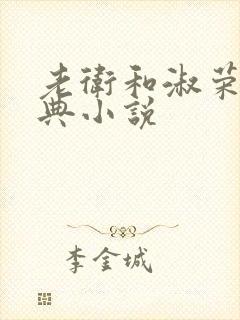 老衛和淑荣
典小説
李金城